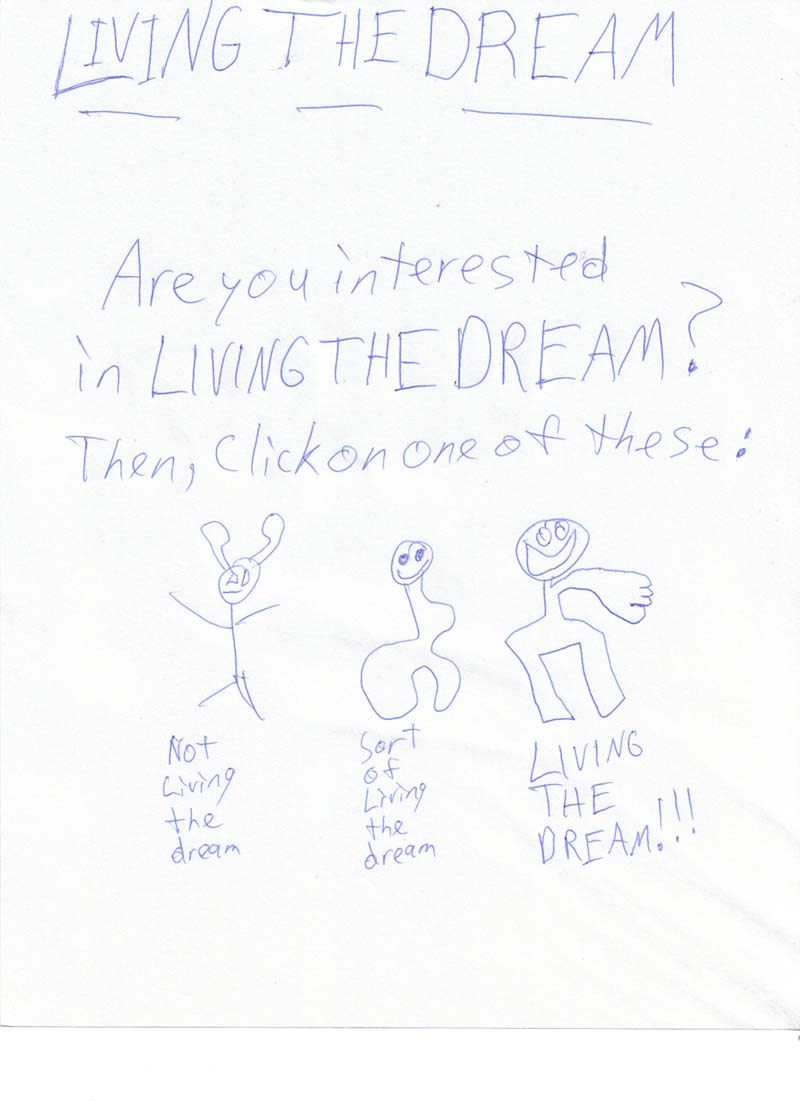 LIVING THE DREAM
Are you interested
in LIVING THE DREAM?
Then, Click on one of these:
Not
Living
the
dream
Sort
of
Living
the
dream
LIVING
THE
DREAM!!!